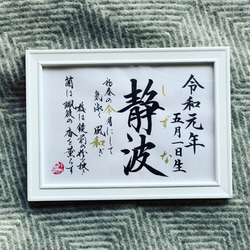 令和元年
五月一日生
しずな
静波
初春の令月にして
気淑く風和ぎ
梅は鏡前の粉を披き
蘭は珮後の香を薫らす